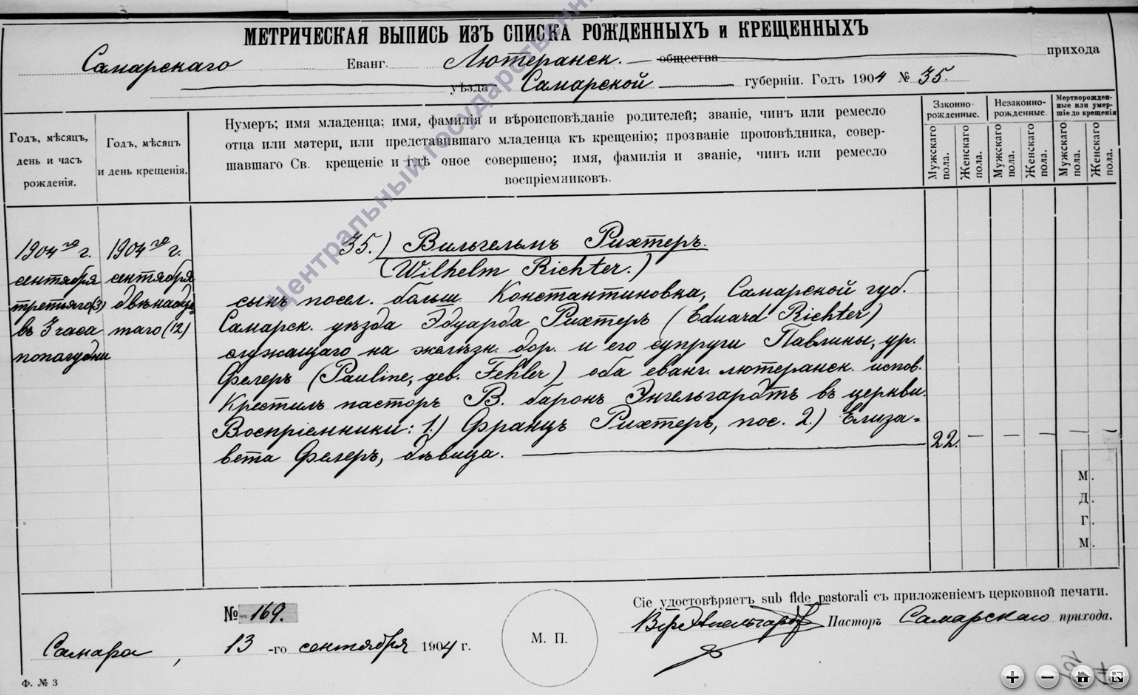 МЕТРИЧЕСКАЯ ВЫПИСЬ ИЗЪ СПИСКА РОЖДЕННЫХЪ и КРЕЩЕННЫХЪ
Самарскаго Еванг. Лютеранск. общества прихода
уѣзда Самарской губерніи. Годъ 1904 № 35.
Годъ, мѣсяцъ, день и часъ рожденія.
Годъ, мѣсяцъ и день крещенія.
Нумеръ; имя младенца; имя, фамилія и вѣроисповѣданіе родителей; званіе, чинъ или ремесло
отца или матери, или представившаго младенца къ крещенію; прозваніе проповѣдника, совер-
шавшаго Св. крещеніе и гдѣ оное совершено; имя, фамилія и званіе, чинъ или ремесло
воспріемниковъ.
Законно-рожденные.
Незаконно-рожденные.
Мертворожден-ные или умер-шіе до крещенія
Мужскаго пола. Женскаго пола. Мужскаго пола. Женскаго пола. Мужскаго пола. Женскаго пола.
1904 го г.
сентября
третьяго (3)
въ 3 часа
пополудни
1904 го г.
сентября
двѣнадца
таго (12)
35.) Вильгельмъ Рихтеръ.
(Wilhelm Richter.)
сынъ посел. больш Константиновка, Самарской губ.
Самарск. уѣзда Эдуарда Рихтеръ (Eduard Richter)
служащаго на желѣзн. дор. и его супруги Павлины, ур.
Фелеръ (Pauline, geb. Fehler) оба еванг. лютеранск. испов.
Крестилъ пасторъ В. баронъ Энгельгардтъ въ церкви.
Воспріемники: 1.) Францъ Рихтеръ, пос. 2.) Елиза-
вета Фелеръ, дѣвица.
22. — — — — —
М.
Д.
Г.
М.
№ 169.
Самара, 13 -го сентября 1904 г.
М. П.
Сіе удостовѣряетъ sub fide pastorali съ приложеніемъ церковной печати.
Пасторъ Самарскаго прихода.
Ф. № 3
Центральный государственн